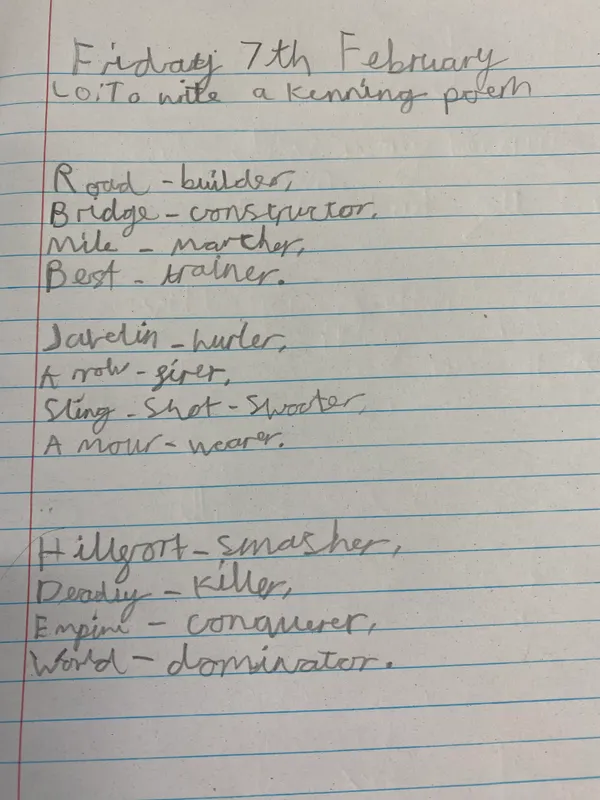 Friday 7th February
LO: To write a kenning poem
Road - builder,
Bridge - constructor,
Mile - marcher,
Best - trainer.
Javelin - hurler,
Arrow - firer,
Sling - shot - shooter,
Amour - wearer.
Hillfort - smasher,
Deadly - killer,
Empire - conquerer,
World - dominator.